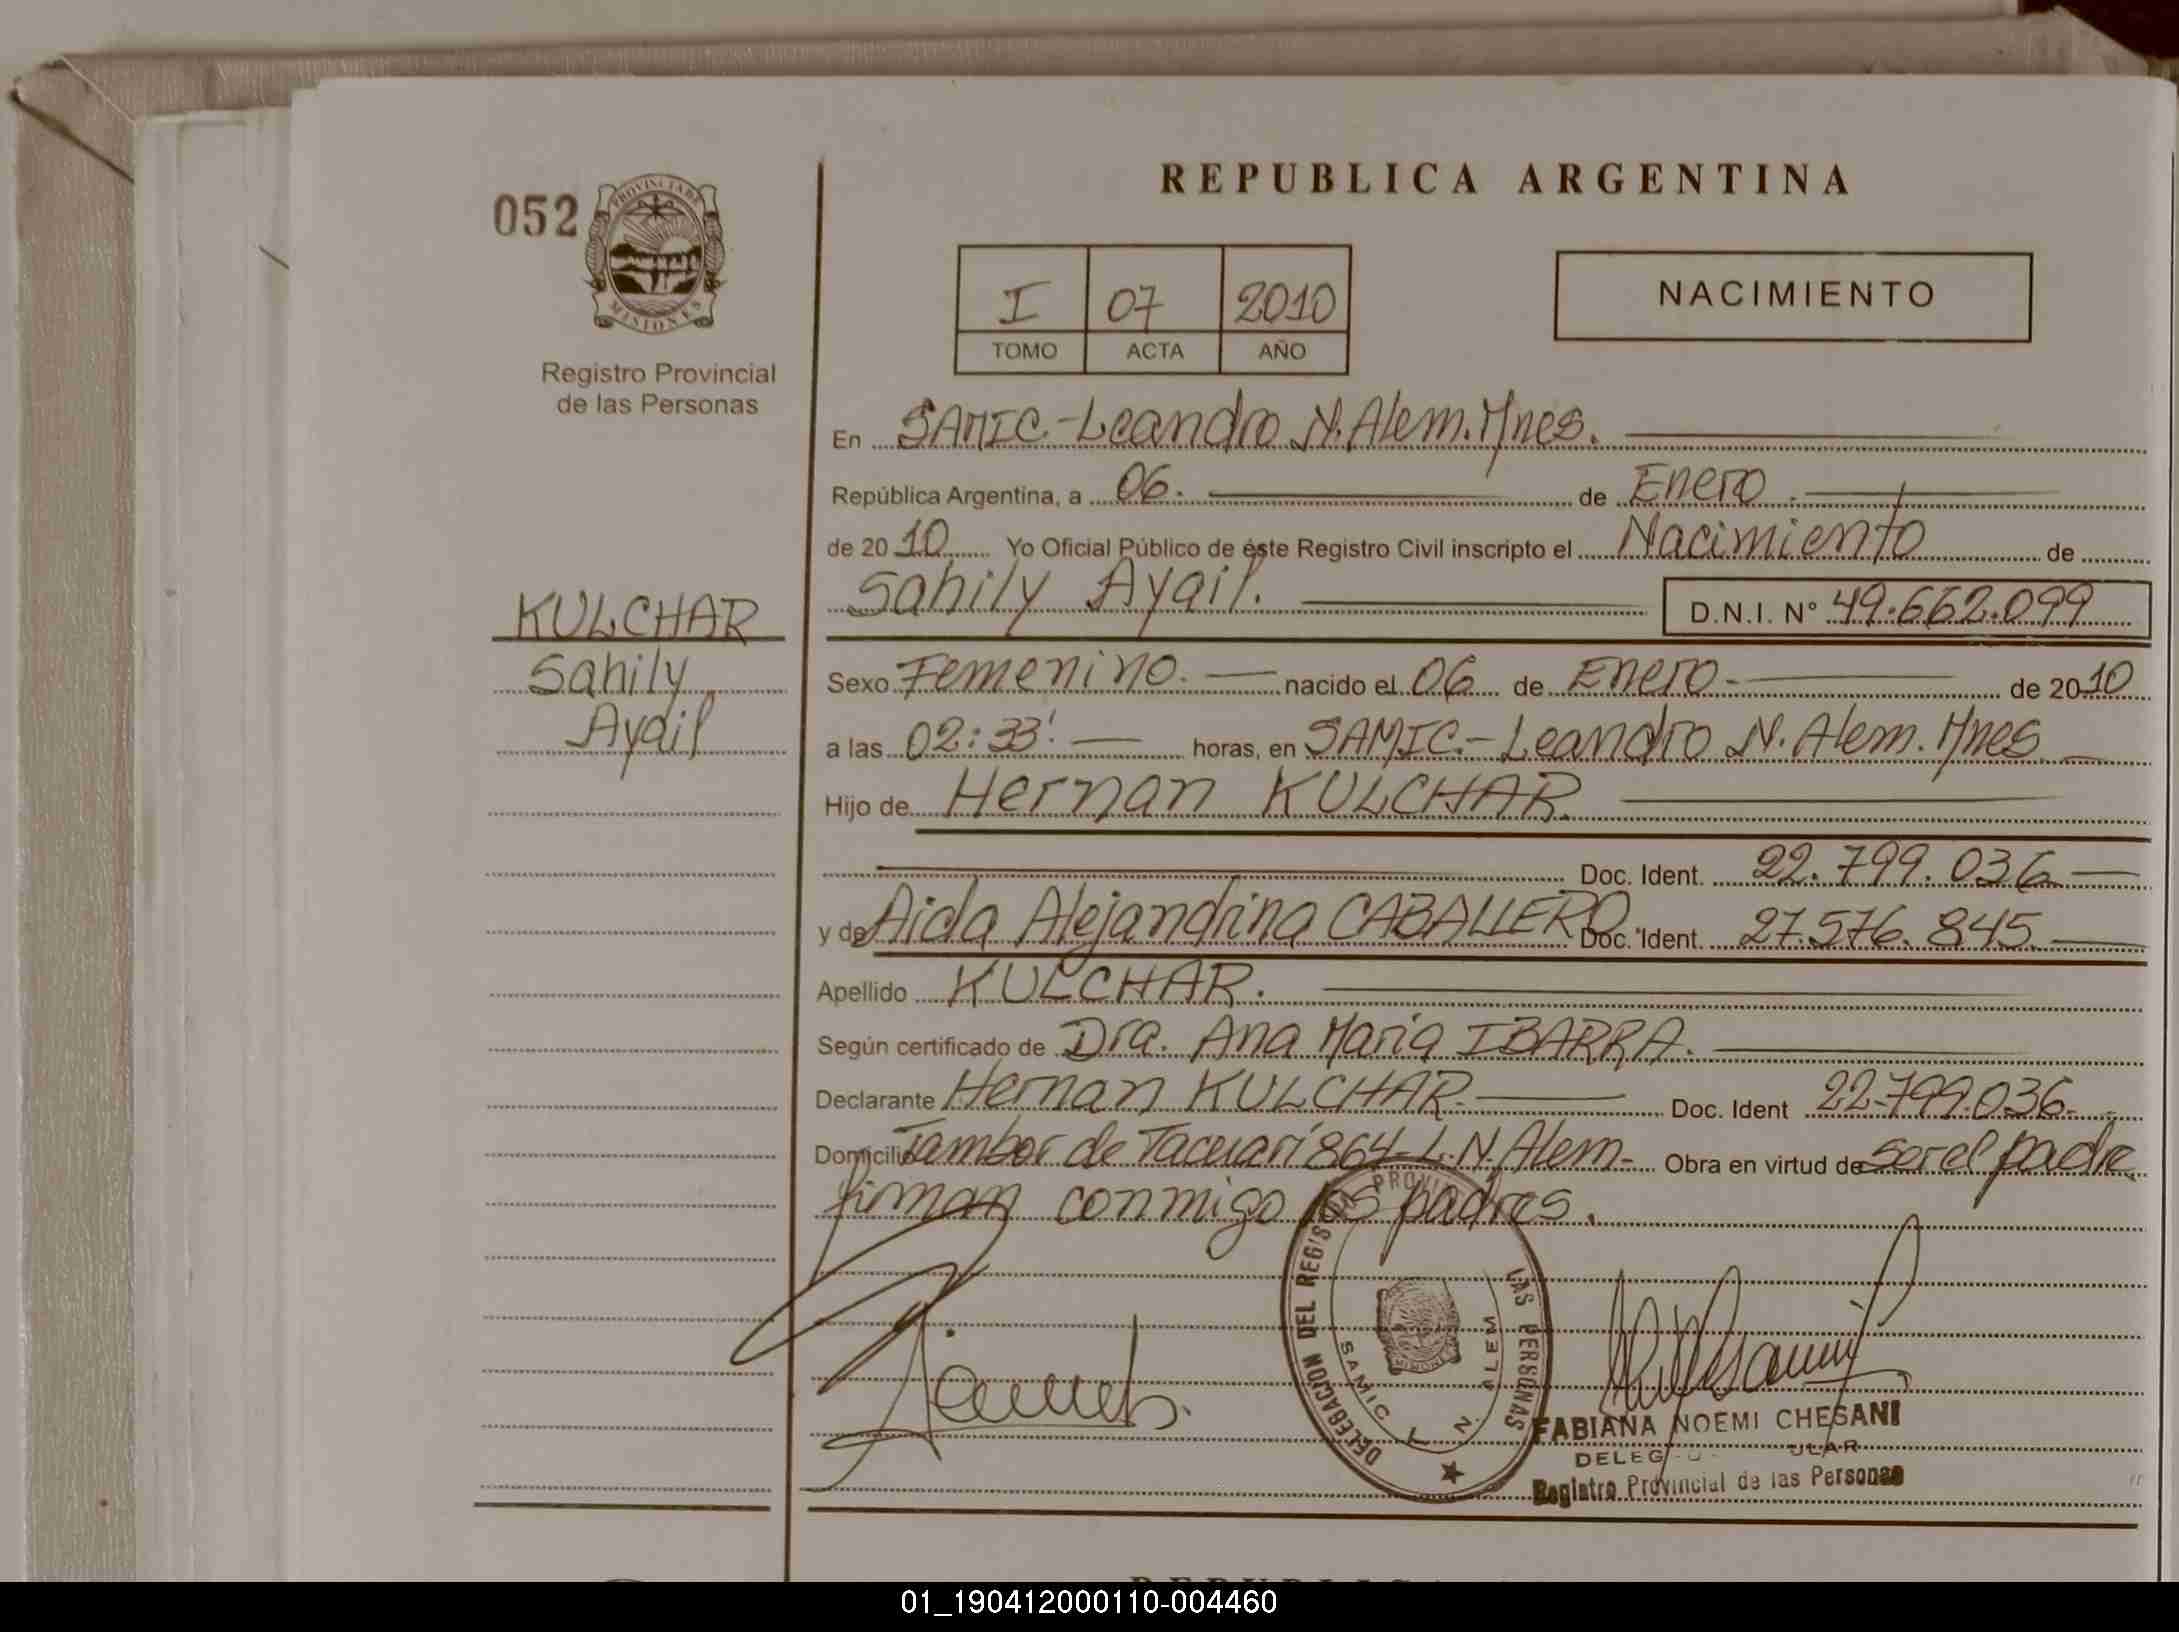 REPUBLICA ARGENTINA
052
PROVINCIA DE
MISIONES
Registro Provincial
de las Personas
I 07 2010
TOMO ACTA AÑO
NACIMIENTO
En SAMIC-Leandro N. Alem. Mnes.
República Argentina, a 06. de Enero.
de 2010 Yo Oficial Público de éste Registro Civil inscripto el Nacimiento de
Sahily Ayail. D.N.I. N° 49.662.099
KULCHAR
Sahily
Ayail
Sexo Femenino. nacido el 06 de Enero de 2010
a las 02:33' horas, en SAMIC.-Leandro N. Alem. Mnes
Hijo de Hernan KULCHAR.
Doc. Ident. 22.799.036
y de Aida Alejandrina CABALLERO Doc. Ident. 27.576.845
Apellido KULCHAR.
Según certificado de Dra. Ana Maria IBARRA.
Declarante Hernan KULCHAR. Doc. Ident 22.799.036
Domicilio Tambor de Tacuarí 864-L.N.Alem- Obra en virtud de ser el padre,
firman conmigo los padres.
DELEGACION DEL REGISTRO LAS PERSONAS
SAMIC L. N. ALEM
MISIONES
FABIANA NOEMI CHESANI
Registro Provincial de las Personas
01_190412000110-004460